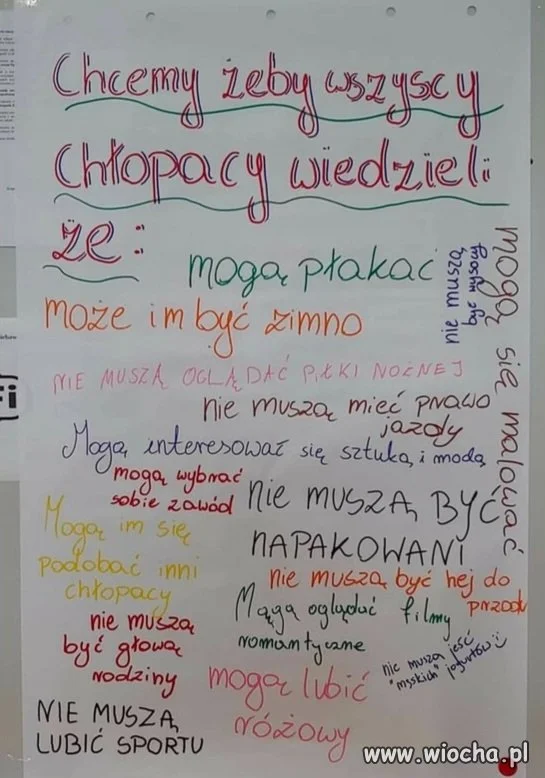 Chcemy żeby wszyscy
chłopacy wiedzieli
że:
mogą płakać
nie muszą
być wysocy
mogą się malować
może im być zimno
NIE MUSZĄ OGLĄDAĆ PIŁKI NOŻNEJ
nie muszą mieć prawo
jazdy
Mogą interesować się sztuką i modą
mogą wybrać
sobie zawód
NIE MUSZĄ BYĆ
NAPAKOWANI
Mogą im się
podobać inni
chłopacy
nie muszą być hej do
przodu
Mogą oglądać filmy
romantyczne
nie muszą
być głową
rodziny
mogą lubić
różowy
nie muszą jeść
"męskich" jogurtów :)
NIE MUSZĄ
LUBIĆ SPORTU
www.wiocha.pl